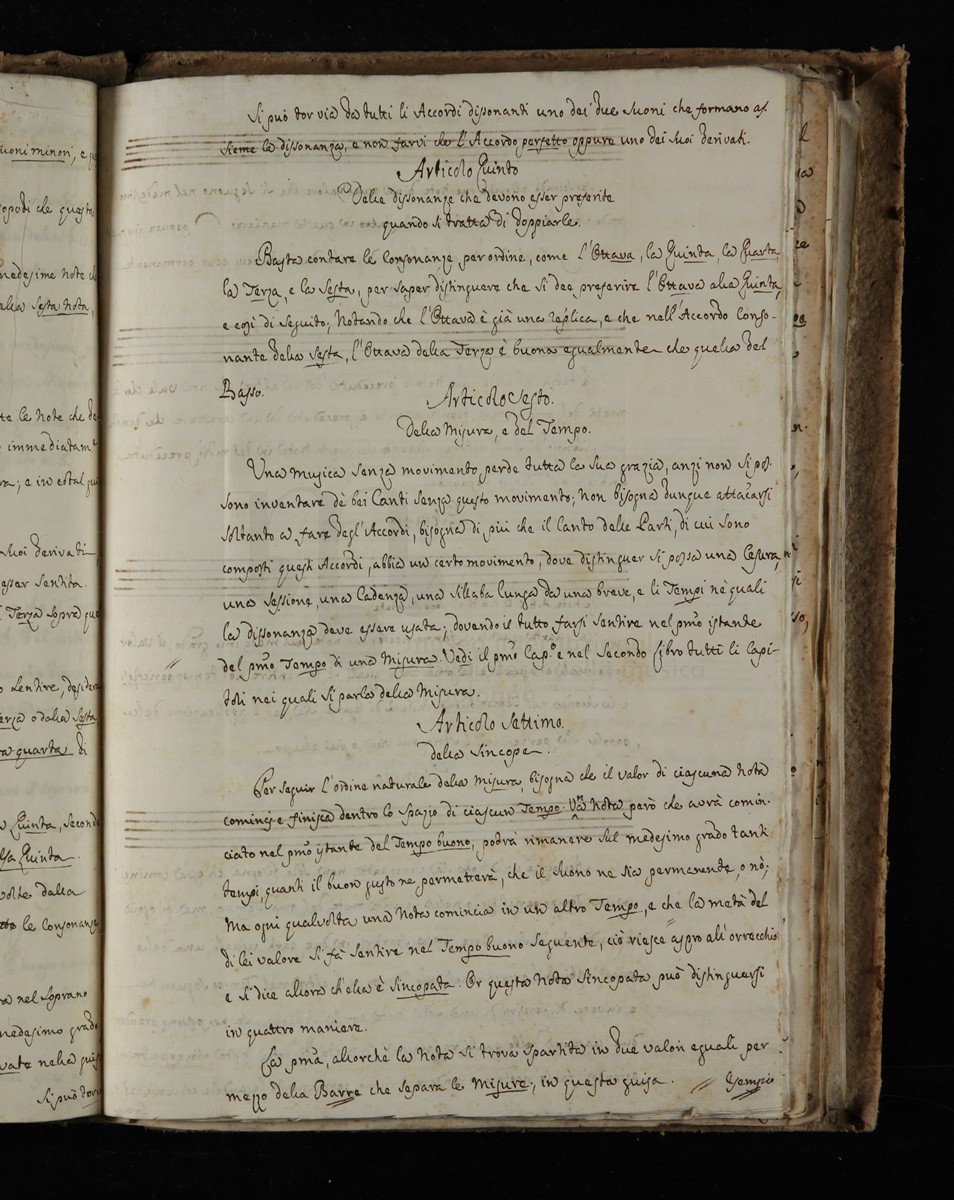 uoni minori, e
opoti che questa
medesime note
alla Sesta nota,
te le note che de
immediatam.te
ra; e in estal
suoi derivati
esser sentita.
Terza sopra
sentire, desidera
erza o dalla Sesta
a quarta di
Quinta, second
Quinta.
volte dalla
le consonanze
a nel Soprano
medesimo grado
vate nella
Si può torr
Si può tor via da tutti li Accordi dissonanti uno dei due suoni che formano as-
sieme la dissonanza, e non farvi che l'Accordo perfetto oppure uno dei suoi derivati.
Articolo Quinto
Delle dissonanze che devono esser preferite
quando si tratta di doppiarle.
Basta contare le consonanze per ordine, come l'Ottava, la Quinta, la Quarta
la Terza, e la Sesta, per saper distinguere che si dee preferire l'Ottava alla Quinta,
e così di seguito; Notando che l'Ottava è già una replica, e che nell'Accordo conso-
nante della Sesta, l'Ottava della Terza è buona egualmente che quella del
Basso.
Articolo Sesto.
Della Misura, e del Tempo.
Una Musica senza movimento, perde tutta la sua grazia, anzi non si pos-
sono inventare de bei Canti senza questo movimento; Non bisogna dunque attaccarsi
soltanto a fare degl'Accordi, bisogna di più che il Canto delle Parti, di cui sono
composti questi Accordi, abbia un certo movimento, dove distinguer si possa una Cesura,
una sessione, una Cadenza, una sillaba lunga da una breve, e li Tempi ne quali
la dissonanza deve essere usata; dovendo il tutto farsi sentire nel pmo istante
del pmo Tempo di una Misura. Vedi il pmo Cap.o e nel Secondo Libro tutti li Capi-
toli nei quali si parla della Misura.
Articolo Settimo.
della Sincope.
Per seguir l'ordine naturale della Misura, bisogna che il valor di ciascuna Nota
cominci e finisca dentro lo spazio di ciascun Tempo. Una Nota però che avrà comin-
ciato nel pmo istante del Tempo buono, podrà rimanere sul medesimo grado tanti
tempi, quanti il buon gusto ne permetterà, che il suono ne sia permanente, o nò;
Ma ogni qualvolta una Nota comincia in un altro Tempo, e che la metà del
di lei valore si fà sentire nel Tempo buono seguente, ciò riesce aspro all'orecchio
e si dice allora ch'ella è sincopata. Or questa Nota sincopata può distinguersi
in quattro maniere.
La pma, allorchè la Nota si trova spartita in due valori eguali per
mezzo della Barre che separa le Misure, in questa guisa. Esempio